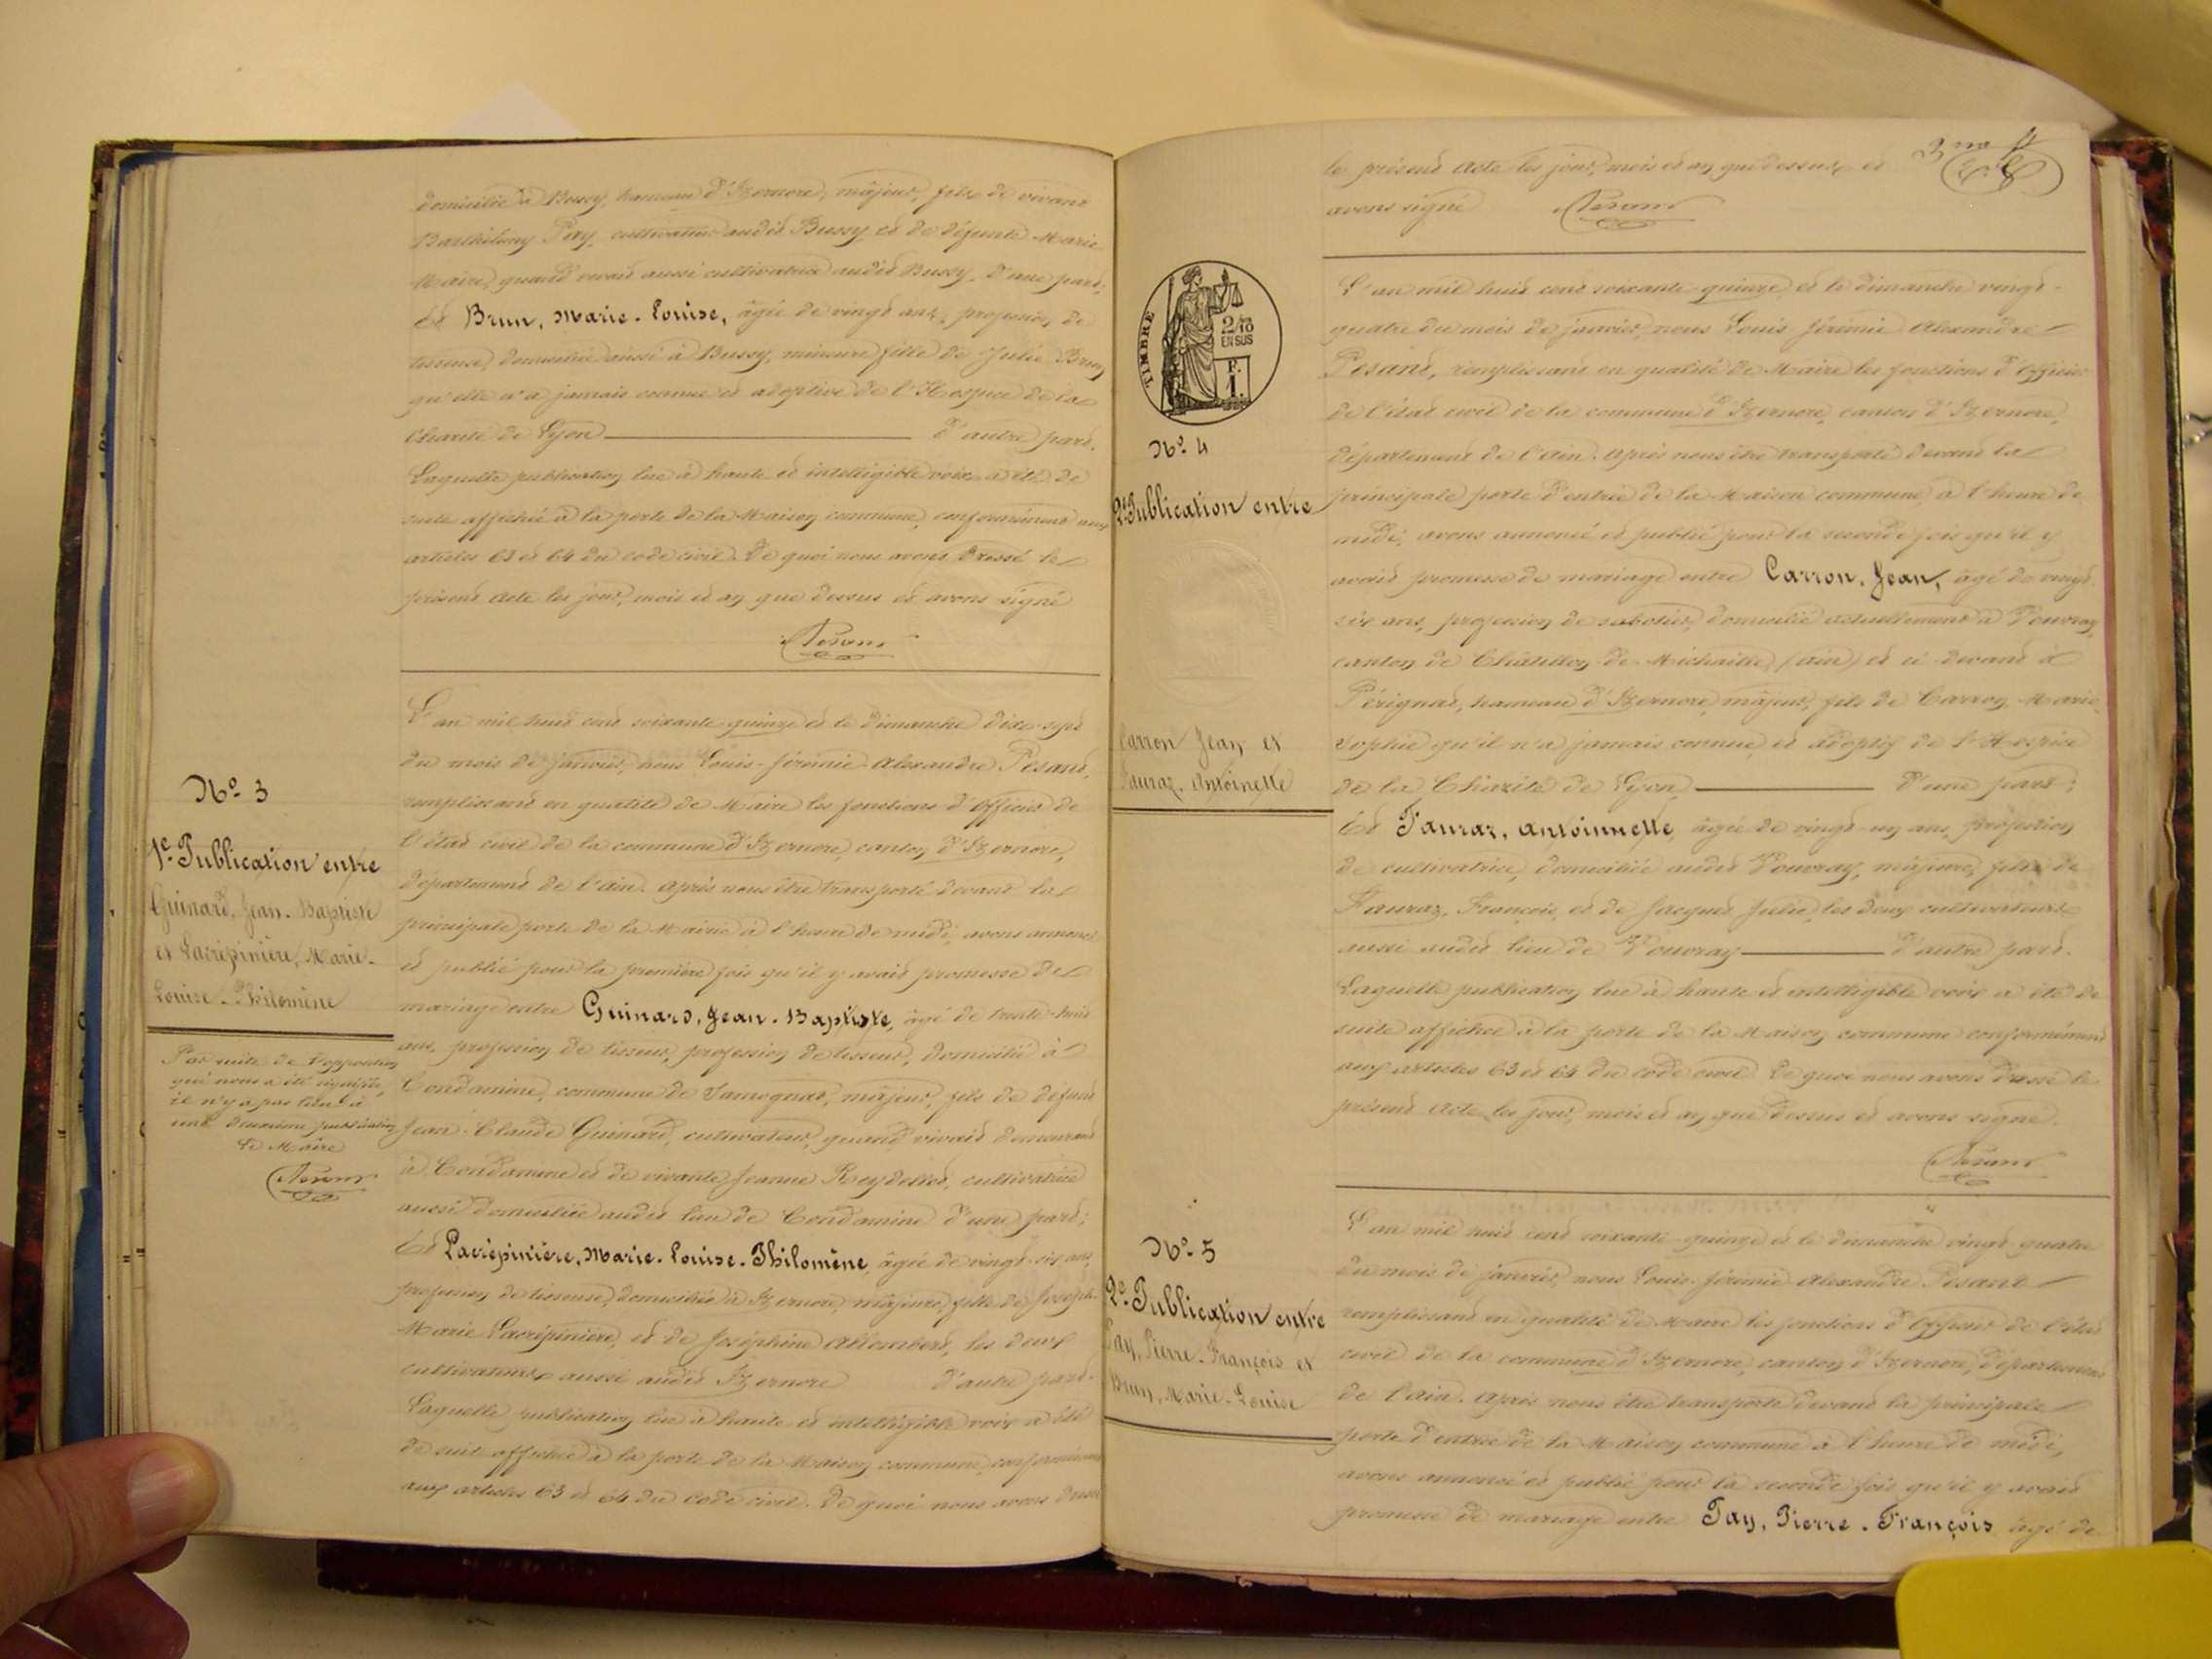 domicilié à Bussy, hameau d'Izernore, majeur, fils de vivant
Barthélemy Pay, cultivateur audit Bussy, et de défunte Marie
Maire, quand vivait aussi cultivatrice audit Bussy, d'une part;
Et Brun, Marie-Louise, âgée de vingt ans, profession de
tisseuse, domiciliée aussi à Bussy, mineure, fille de Julie Brun
qu'elle n'a jamais connue et adoptive de l'Hospice de la
Charité de Lyon d'autre part.
Laquelle publication lue à haute et intelligible voix a été de
suite affichée à la porte de la Maison commune, conformément aux
articles 63 et 64 du code civil. De quoi nous avons dressé le
présent acte les jour, mois et an que dessus et avons signé
Pesant
No. 3
1e. Publication entre
Guinard, Jean-Baptiste
et Lacrépinière, Marie-
Louise-Philomène
Par suite de l'opposition
qui nous a été signifiée,
il n'y a pas lieu à
une deuxième publication
Le Maire
Pesant
L'an mil huit cent soixante-quinze et le dimanche dix-sept
du mois de janvier, nous Louis-Jérémie-Alexandre Pesant,
remplissant en qualité de Maire les fonctions d'officier de
l'état civil de la commune d'Izernore, canton d'Izernore,
département de l'Ain. Après nous être transporté devant la
principale porte de la Mairie à l'heure de midi, avons annoncé
et publié pour la première fois qu'il y avait promesse de
mariage entre Guinard, Jean-Baptiste, âgé de trente-huit
ans, profession de tisseur, profession de tisseur, domicilié à
Condamine, commune de Samognat, majeur, fils de défunt
Jean-Claude Guinard, cultivateur, quand vivait demeurant
à Condamine et de vivante Jeanne Reydellet, cultivatrice
aussi domiciliée audit lieu de Condamine d'une part;
Et Lacrépinière, Marie-Louise-Philomène, âgée de vingt-six ans,
profession de tisseuse, domiciliée à Izernore, majeure, fille de Joseph-
Marie Lacrépinière, et de Joséphine Allombert, les deux
cultivateurs aussi audit Izernore d'autre part.
Laquelle publication lue à haute et intelligible voix a été
de suite affichée à la porte de la Maison commune, conformément
aux articles 63 et 64 du code civil. De quoi nous avons dressé
le présent acte les jour, mois et an que dessus et
avons signé Pesant
TIMBRE
2/10
EN SUS
F.
1.
No. 4
2e. Publication entre
Carron Jean et
Fauraz, Antoinette
L'an mil huit cent soixante-quinze et le dimanche vingt-
quatre du mois de janvier, nous Louis Jérémie Alexandre
Pesant, remplissant en qualité de Maire les fonctions d'officier
de l'état civil de la commune d'Izernore, canton d'Izernore,
département de l'Ain. Après nous être transporté devant la
principale porte d'entrée de la Maison commune à l'heure de
midi, avons annoncé et publié pour la seconde fois qu'il y
avait promesse de mariage entre Carron, Jean, âgé de vingt-
six ans, profession de sabotier, domicilié actuellement à Vouvray,
canton de Châtillon-de-Michaille (Ain) et ci-devant à
Pérignat, hameau d'Izernore, majeur, fils de Carron, Marie-
Sophie qu'il n'a jamais connue, et adoptif de l'Hospice
de la Charité de Lyon d'une part;
Et Fauraz, Antoinnette, âgée de vingt-un ans, profession
de cultivatrice, domiciliée audit Vouvray, majeure, fille de
Fauraz, François, et de Jacquet Julie, les deux cultivateurs
aussi audit lieu de Vouvray d'autre part.
Laquelle publication lue à haute et intelligible voix a été de
suite affichée à la porte de la Maison commune conformément
aux articles 63 et 64 du code civil. De quoi nous avons dressé le
présent acte les jour, mois et an que dessus et avons signé.
Pesant
No. 5
2e. Publication entre
Pay, Pierre-François et
Brun, Marie-Louise
L'an mil huit cent soixante-quinze et le dimanche vingt-quatre
du mois de janvier, nous Louis-Jérémie Alexandre Pesant
remplissant en qualité de Maire les fonctions d'officier de l'état
civil de la commune d'Izernore, canton d'Izernore, département
de l'Ain. Après nous être transporté devant la principale
porte d'entrée de la Maison commune à l'heure de midi,
avons annoncé et publié pour la seconde fois qu'il y avait
promesse de mariage entre Pay, Pierre-François âgé de